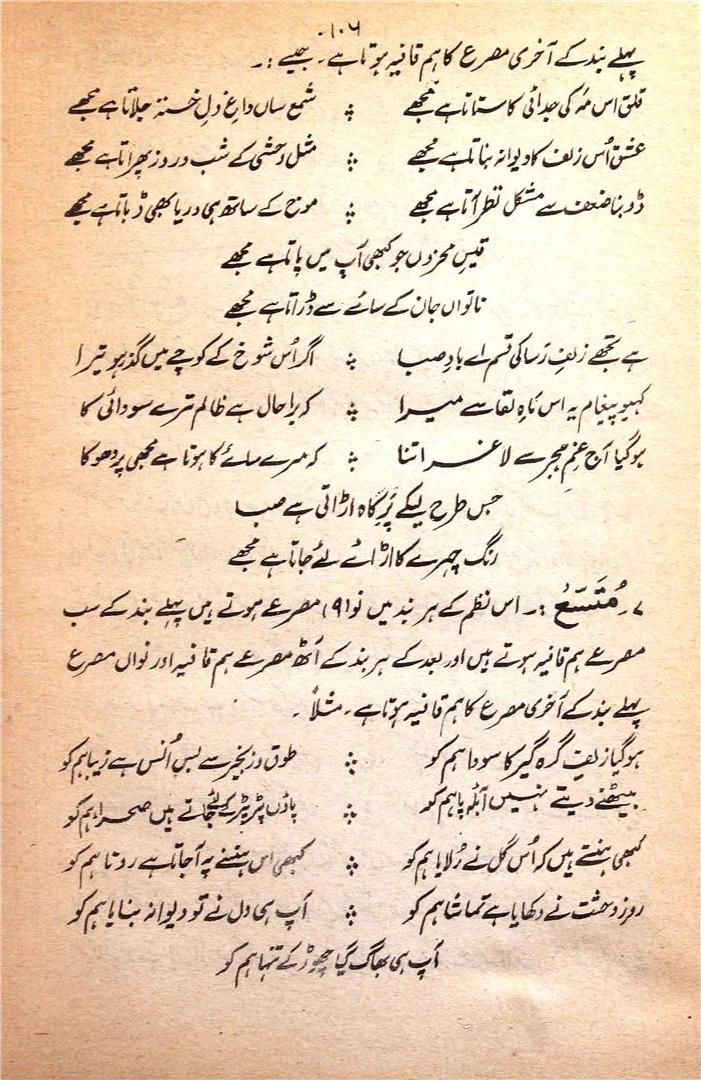 ۱۰۶
پہلے بند کے آخری مصرع کا ہم قافیہ ہوتا ہے۔ جیسے :۔
قلق اس مہ کی جدائی کا ستاتا ہے مجھے ؞ شمع ساں داغِ دلِ خستہ جلاتا ہے مجھے
عشق اُس زلف کا دیوانہ بناتا ہے مجھے ؞ مثل وحشی کے شب و روز پھراتا ہے مجھے
ڈوبنا ضعف سے مشکل نظر آتا ہے مجھے ؞ موج کے ساتھ ہی دریا بھی ڈباتا ہے مجھے
قیسِ محزوں جو کبھی آپ میں پاتا ہے مجھے
ناتواں جان کے سائے سے ڈراتا ہے مجھے
ہے تجھے زلفِ رَسا کی قسم اے بادِ صبا ؞ اگر اُس شوخ کے کوچے میں گذر ہو تیرا
کہیو پیغام یہ اس مَاہِ لقا سے میرا ؞ کہ برا حال ہے ظالم ترے سودائی کا
ہوگیا آج غمِ ہجر سے لاغر اتنا ؞ کہ مرے سائے کا ہوتا ہے مجھی پر دھوکا
جس طرح لیکے پَرِ گاہ اڑاتی ہے صبا
رنگ چہرے کا اڑائے لئے جاتا ہے مجھے
۷۔ مُتَسّعُ :۔ اس نظم کے ہر بند میں نو (۹) مصرعے ہوتے ہیں پہلے بند کے سب
مصرعے ہم قافیہ ہوتے ہیں اور بعد کے ہر بند کے آٹھ مصرعے ہم قافیہ اور نواں مصرع
پہلے بند کے آخری مصرع کا ہم قافیہ ہوتا ہے۔ مثلاً ۔
ہوگیا زلفِ گرہ گیر کا سودا ہم کو ؞ طوق و زنجیر سے بس اُنس ہے زیبا ہم کو
بیٹھنے دیتے نہیں آبلہ پا ہم کو ؞ پاؤں پڑ پڑ کے لئے جاتے ہیں صحرا ہم کو
کبھی ہنستے ہیں کہ اُس گل نے رُلایا ہم کو ؞ کبھی اس ہنسنے پہ آجاتا ہے رونا ہم کو
روز وحشت نے دکھایا ہے تماشا ہم کو ؞ آپ ہی دل نے تو دیوانہ بنایا ہم کو
آپ ہی بھاگ گیا چھوڑ کے تنہا ہم کو